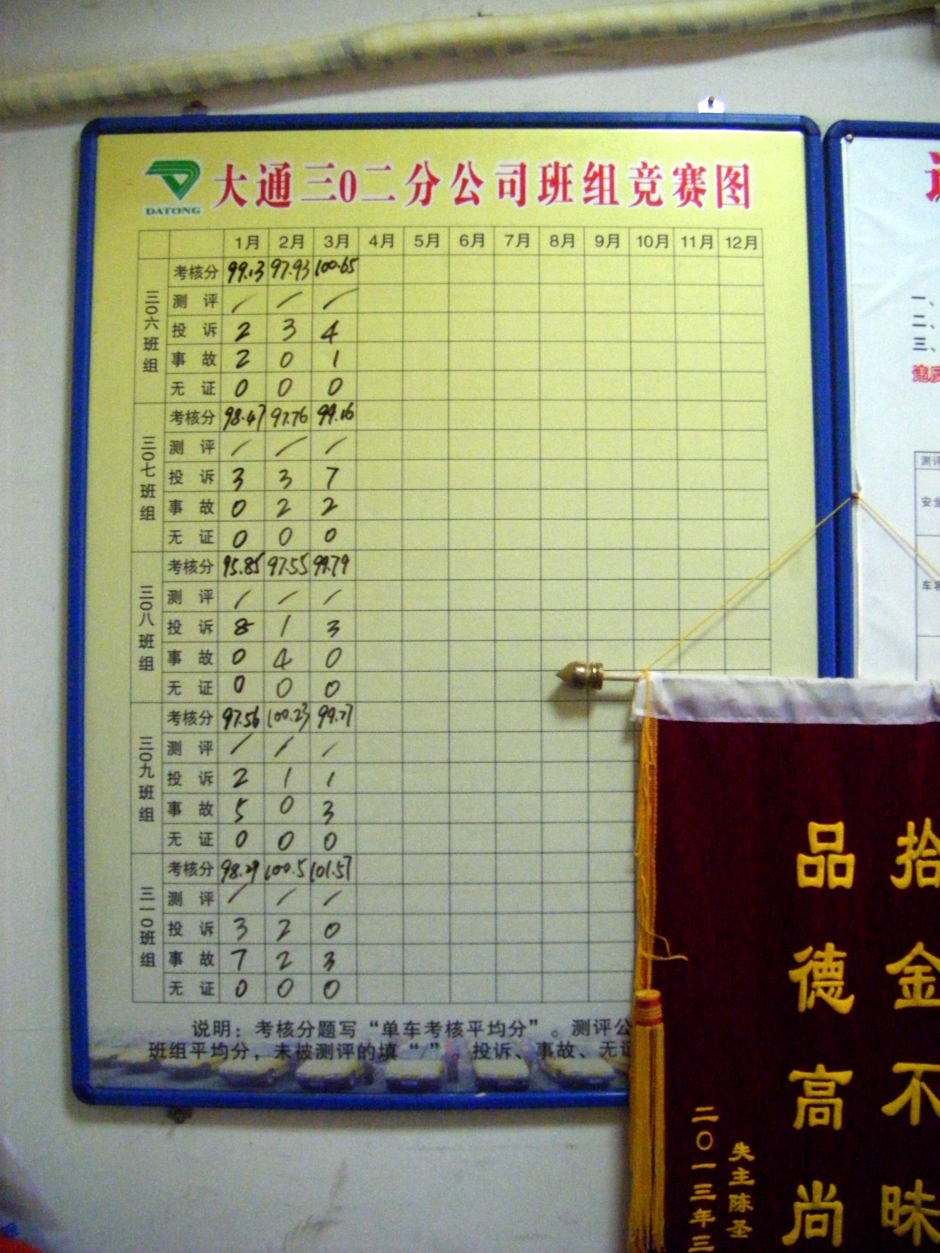 大通三0二分公司班组竞赛图
DATONG
1月 2月 3月 4月 5月 6月 7月 8月 9月 10月 11月 12月
三0六班组
考核分 99.13 97.93 100.65
测评 / / /
投诉 2 3 4
事故 2 0 1
无证 0 0 0
三0七班组
考核分 98.47 97.76 99.16
测评 / / /
投诉 3 3 7
事故 0 2 2
无证 0 0 0
三0八班组
考核分 95.85 97.55 99.79
测评 / / /
投诉 8 1 3
事故 0 4 0
无证 0 0 0
三0九班组
考核分 97.56 100.23 99.27
测评 / / /
投诉 2 1 1
事故 5 0 3
无证 0 0 0
三一0班组
考核分 98.29 100.5 101.57
测评 / / /
投诉 3 2 0
事故 7 2 3
无证 0 0 0
说明：考核分题写“单车考核平均分”。测评公
班组平均分，未被测评的填“/”。投诉、事故、无证
一、
二、
三、
违反
测评
安全
车客
拾金不昧
品德高尚
失主陈圣
二0一三年三